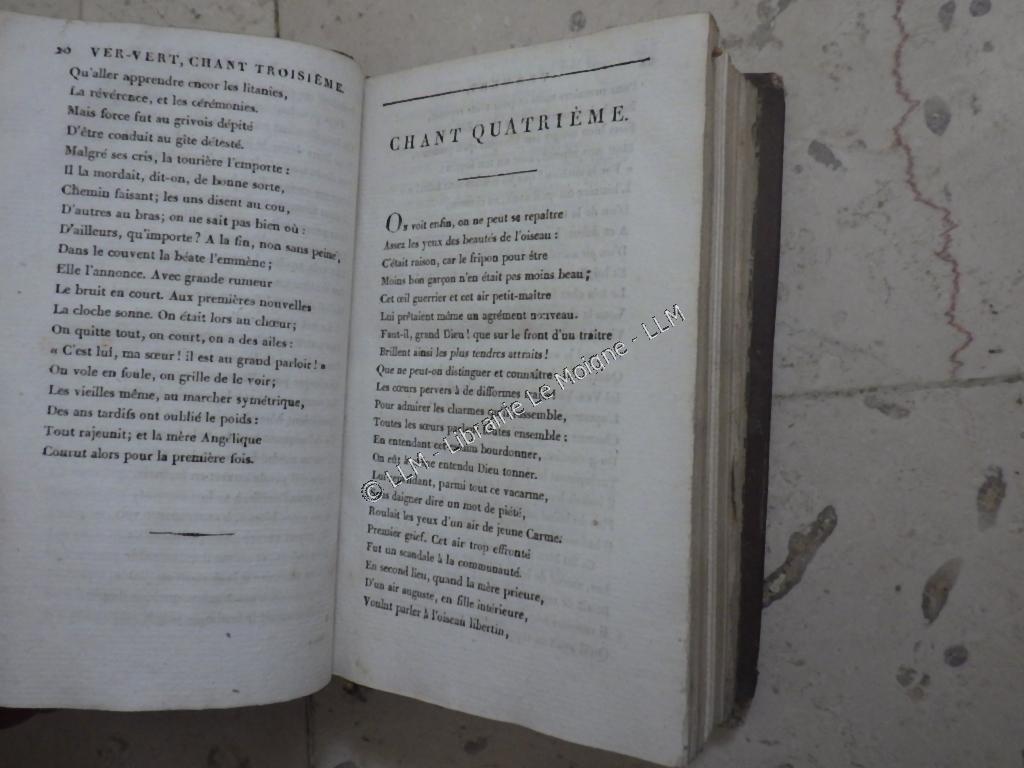 20 VER-VERT, CHANT TROISIÈME.
Qu'aller apprendre encor les litanies,
La révérence, et les cérémonies.
Mais force fut au grivois dépité
D'être conduit au gîte détesté.
Malgré ses cris, la tourière l'emporte :
Il la mordait, dit-on, de bonne sorte,
Chemin faisant; les uns disent au cou,
D'autres au bras; on ne sait pas bien où :
D'ailleurs, qu'importe? A la fin, non sans peine,
Dans le couvent la béate l'emmène;
Elle l'annonce. Avec grande rumeur
Le bruit en court. Aux premières nouvelles
La cloche sonne. On était lors au chœur;
On quitte tout, on court, on a des ailes :
« C'est lui, ma sœur! il est au grand parloir! »
On vole en foule, on grille de le voir;
Les vieilles même, au marcher symétrique,
Des ans tardifs ont oublié le poids :
Tout rajeunit; et la mère Angélique
Courut alors pour la première fois.
CHANT QUATRIÈME.
On voit enfin, on ne peut se repaître
Assez les yeux des beautés de l'oiseau :
C'était raison, car le fripon pour être
Moins bon garçon n'en était pas moins beau;
Cet œil guerrier et cet air petit-maître
Lui prêtaient même un agrément nouveau.
Faut-il, grand Dieu! que sur le front d'un traître
Brillent ainsi les plus tendres attraits!
Que ne peut-on distinguer et connaître
Les cœurs pervers à de difformes
Pour admirer les charmes qu'il rassemble,
Toutes les sœurs parlent toutes ensemble :
En entendant cet essaim bourdonner,
On eût à peine entendu Dieu tonner.
Lui cependant, parmi tout ce vacarme,
Sans daigner dire un mot de piété,
Roulait les yeux d'un air de jeune Carme.
Premier grief. Cet air trop effronté
Fut un scandale à la communauté.
En second lieu, quand la mère prieure,
D'un air auguste, en fille intérieure,
Voulut parler à l'oiseau libertin,
© LLM - Librairie Le Moigne - LLM